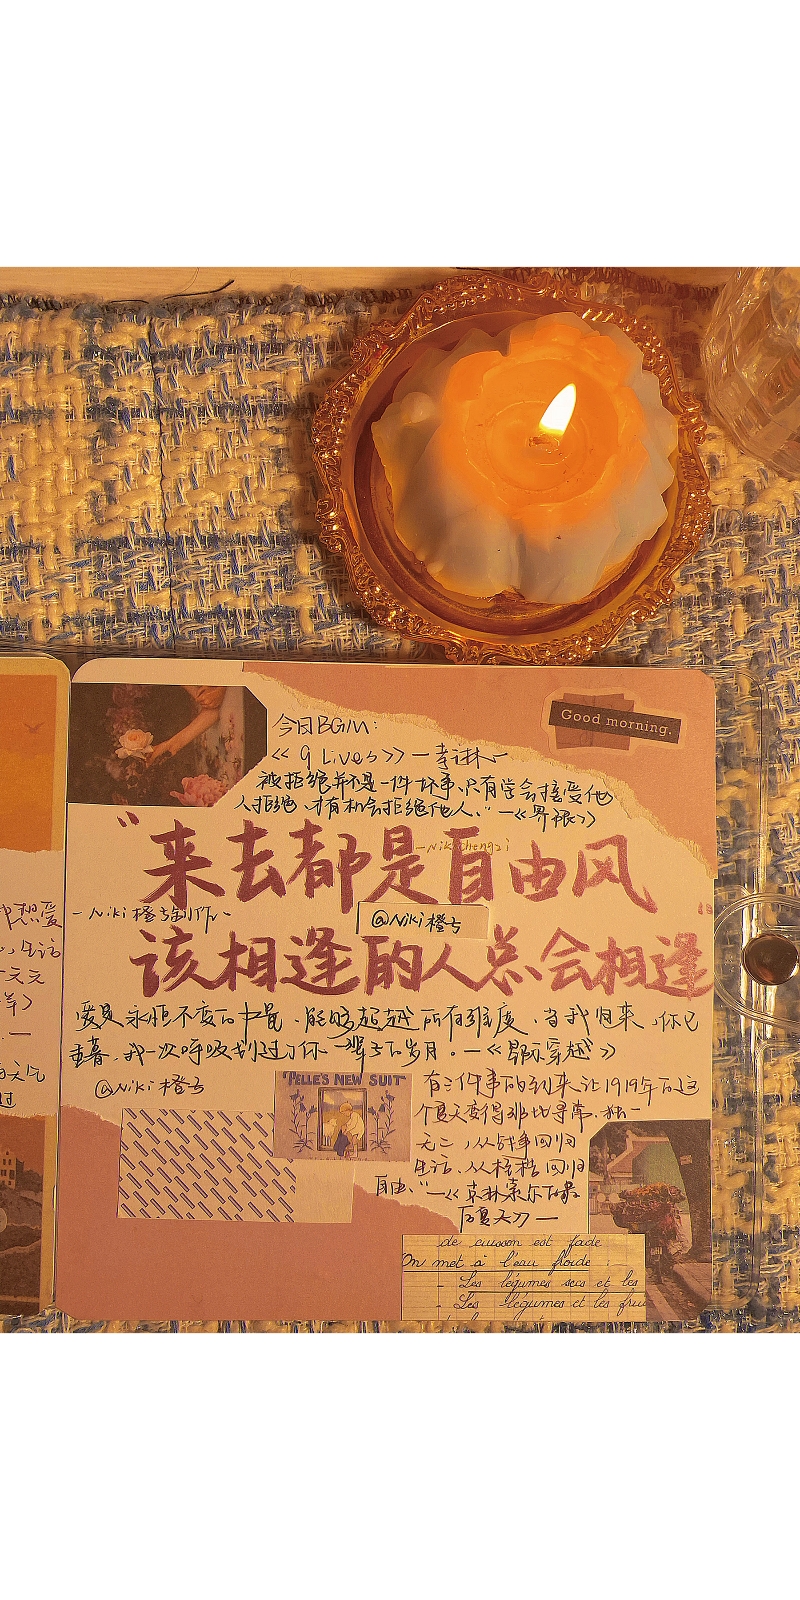 今日BGM：
Good morning.
<<9 Lives>>一李润林~
被拒绝并不是一件坏事、只有学会接受他
人拒绝、才有机会拒绝他人。"—<<界限>>
"来去都是自由风
—Nikichengzi
-Niki橙子制作-
@Niki橙子
该相逢的人总会相逢"
爱是永恒不变的力量，能够超越所有维度，当我归来，你已
垂暮，我一次呼吸划过了你一辈子的岁月。—<<星际穿越>>
@Niki橙子
"PELLE'S NEW SUIT"
有三件事的到来让1919年的这
个夏天变得非比寻常、独一
无二，从战争回归
生活、从桎梏回归
自由。"—<<克林索尔的最
后夏天>>—
de cuisson est fade
On met à l'eau froide :
- Les légumes secs et les
- Les légumes et les frui
想爱
生活
天气
过